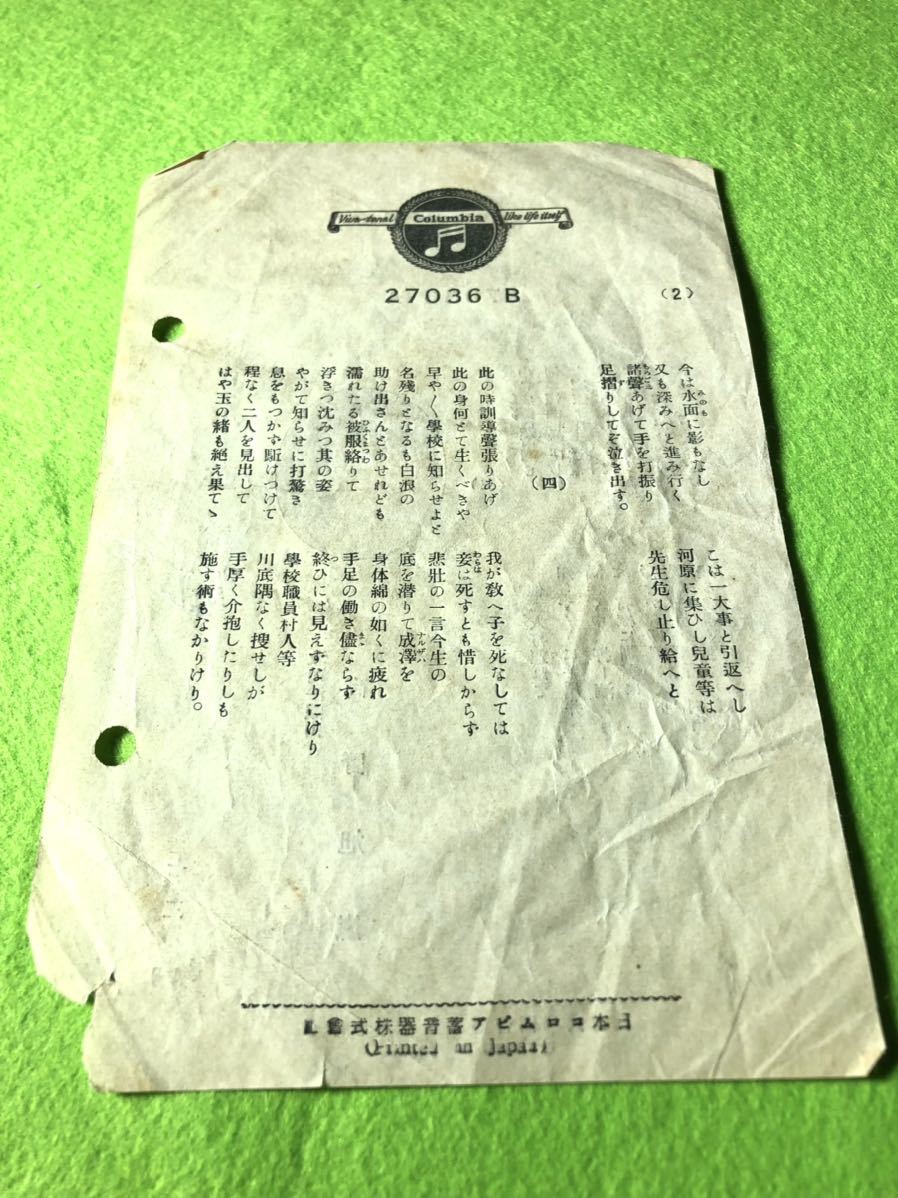 Viva-tonal Columbia like life itself
27036 B
(2)
今は水面に影もなし
こは一大事と引返へし
又も深みへと進み行く
河原に集ひし兒童等は
諸聲あげて手を打振り
先生危し止り給へと
足摺りしてぞ泣き出す。
(四)
此の時訓導聲張りあげ
我が敎へ子を死なしては
此の身何とて生くべきや
妾は死すとも惜しからず
早や〱學校に知らせよと
悲壯の一言今生の
名残りとなるも白浪の
底を潜りて成澤を
助け出さんとあせれども
身体綿の如くに疲れ
濡れたる被服絡りて
手足の働き儘ならず
浮きつ沈みつ其の姿
終ひには見えずなりにけり
やがて知らせに打驚き
學校職員村人等
息をもつかず駈けつけて
川底隅なく捜せしが
程なく二人を見出して
手厚く介抱したりしも
はや玉の緒も絶え果てゝ
施す術もなかりけり。
日本コロムビア蓄音器株式會社
(Printed in Japan)